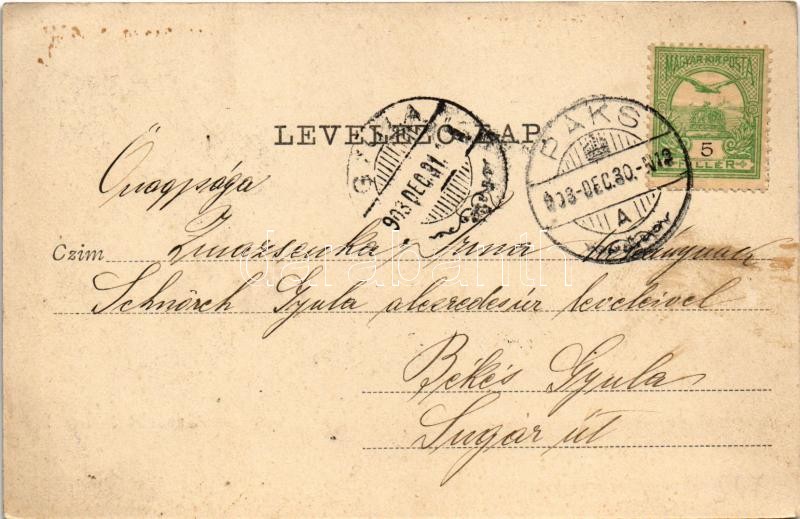 MAGYAR KIR. POSTA
5
FILLÉR
LEVELEZŐ-LAP
GYULA
903 DEC. 31.
PAKS
903-DEC.30.-N12
A
Őnagysága
Czim Irma
Schnörch Gyula alezredesur leveleivel
Békés Gyula
Sugár út
darabanth